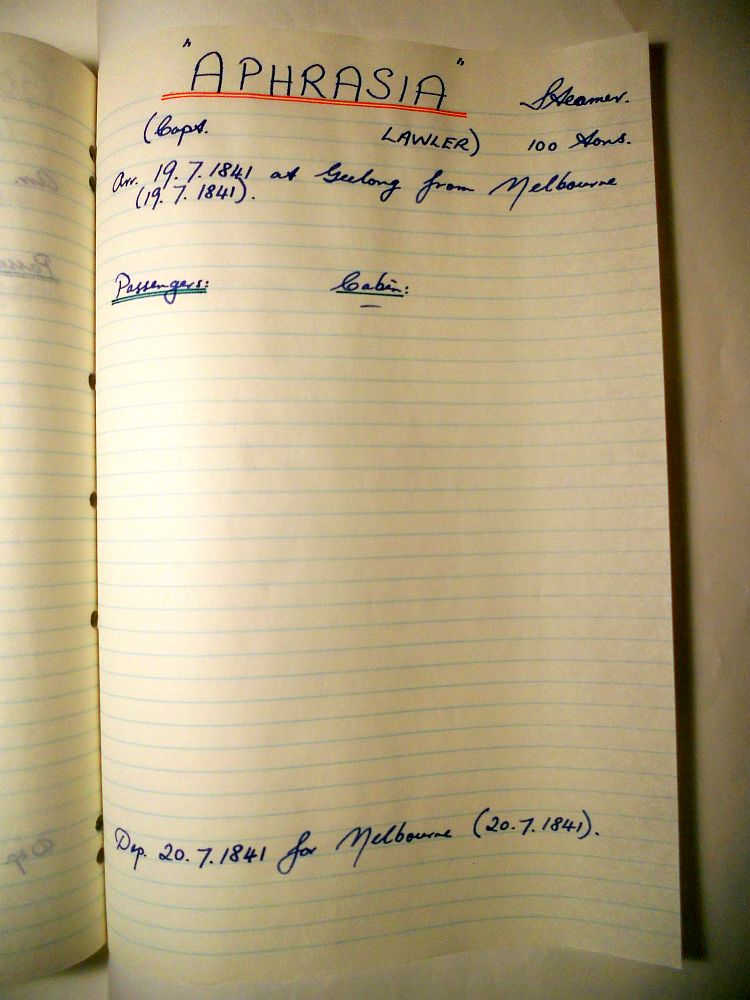 "APHRASIA" Steamer.
(Capt. LAWLER) 100 tons.
Arr. 19.7.1841 at Geelong from Melbourne
(19.7.1841).
Passengers: Cabin:
—
Dep. 20.7.1841 for Melbourne (20.7.1841).